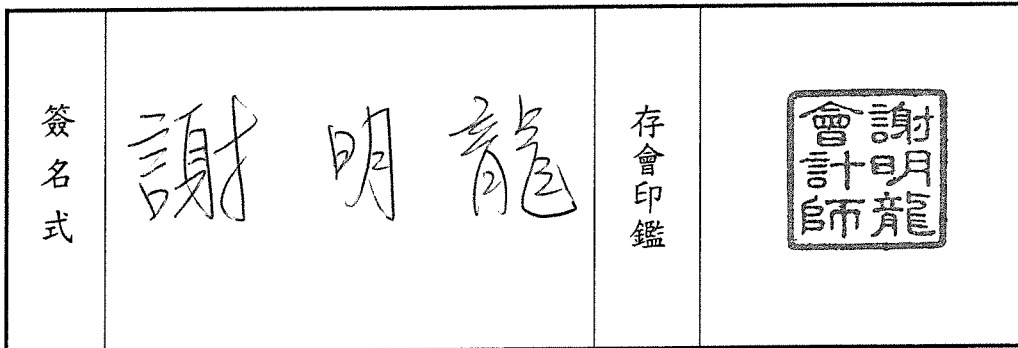 簽名式
謝明龍
存會印鑑
謝明龍
會計師